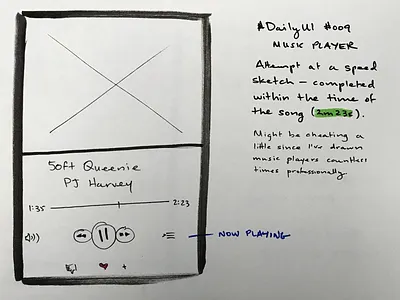 #DailyUI #009
MUSIC PLAYER
Attempt at a speed
sketch – completed
within the time of
the song (2m23s).
Might be cheating a
little since I've drawn
music players countless
times professionally.
50ft Queenie
PJ Harvey
1:35
2:23
NOW PLAYING